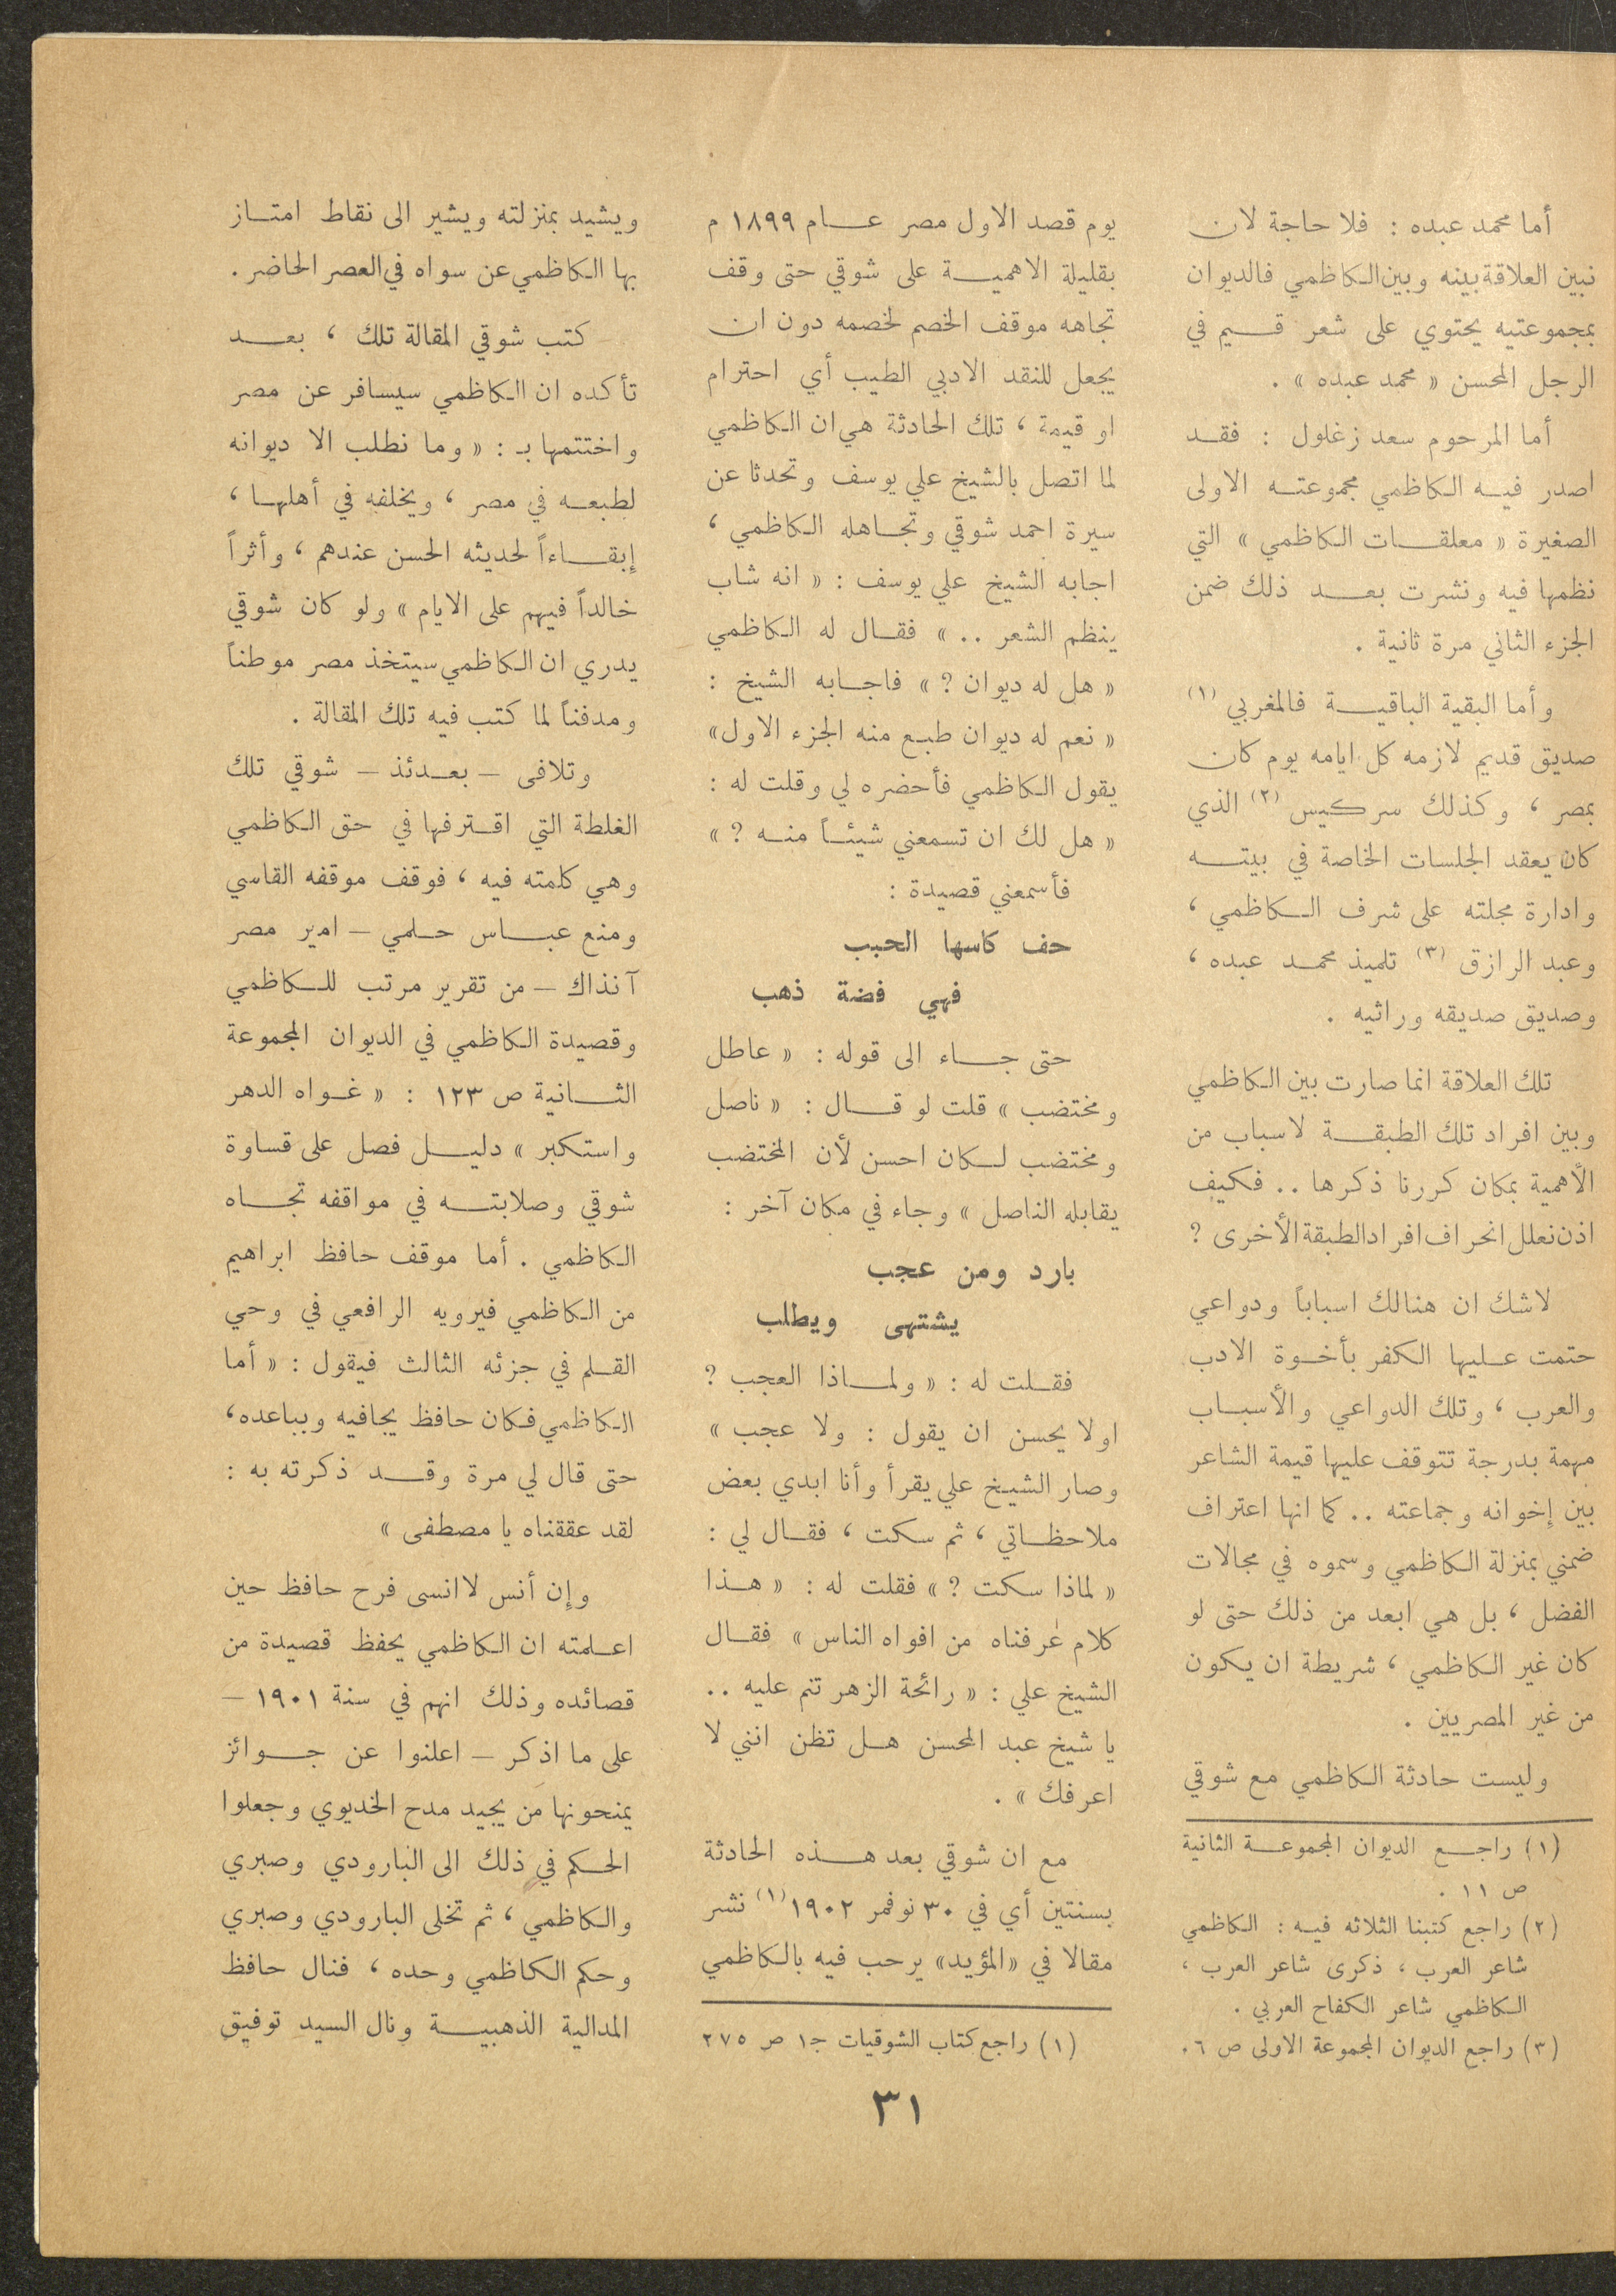 أما محمد عبده : فلا حاجة لان
نبين العلاقة بينه وبين الكاظمي فالديوان
بمجموعتيه يحتوي على شعر قيم في
الرجل المحسن « محمد عبده » .
أما المرحوم سعد زغلول : فقد
اصدر فيه الكاظمي مجموعته الاولى
الصغيرة « معلقات الكاظمي » التي
نظمها فيه ونشرت بعد ذلك ضمن
الجزء الثاني مرة ثانية .
وأما البقية الباقية فالمغربي (١)
صديق قديم لازمه كل ايامه يوم كان
بمصر ، وكذلك سركيس (٢) الذي
كان يعقد الجلسات الخاصة في بيته
وادارة مجلته على شرف الكاظمي ،
وعبد الرازق (٣) تلميذ محمد عبده ،
وصديق صديقه وراثيه .
تلك العلاقة انما صارت بين الكاظمي
وبين افراد تلك الطبقة لاسباب من
الأهمية بمكان كررنا ذكرها .. فكيف
اذن نعلل انحراف افراد الطبقة الأخرى ؟
لاشك ان هنالك اسباباً ودواعي
حتمت عليها الكفر بأخوة الادب
والعرب ، وتلك الدواعي والأسباب
مهمة بدرجة تتوقف عليها قيمة الشاعر
بين إخوانه وجماعته .. كما انها اعتراف
ضمني بمنزلة الكاظمي وسموه في مجالات
الفضل ، بل هي ابعد من ذلك حتى لو
كان غير الكاظمي ، شريطة ان يكون
من غير المصريين .
وليست حادثة الكاظمي مع شوقي
(١) راجع الديوان المجموعة الثانية
ص ١١ .
(٢) راجع كتبنا الثلاثه فيه : الكاظمي
شاعر العرب ، ذكرى شاعر العرب ،
الكاظمي شاعر الكفاح العربي .
(٣) راجع الديوان المجموعة الاولى ص ٦ .
يوم قصد الاول مصر عام ١٨٩٩ م
بقليلة الاهمية على شوقي حتى وقف
تجاهه موقف الخصم لخصمه دون ان
يجعل للنقد الادبي الطيب أي احترام
او قيمة ، تلك الحادثة هي ان الكاظمي
لما اتصل بالشيخ علي يوسف وتحدثا عن
سيرة احمد شوقي وتجاهله الكاظمي ،
اجابه الشيخ علي يوسف : « انه شاب
ينظم الشعر .. » فقال له الكاظمي
« هل له ديوان ؟ » فاجابه الشيخ :
« نعم له ديوان طبع منه الجزء الاول »
يقول الكاظمي فأحضره لي وقلت له :
« هل لك ان تسمعني شيئاً منه ؟ »
فأسمعني قصيدة :
حف كاسها الحبب
فهي فضة ذهب
حتى جاء الى قوله : « عاطل
ومختضب » قلت لو قال : « ناصل
ومختضب لكان احسن لأن المختضب
يقابله الناصل » وجاء في مكان آخر :
بارد ومن عجب
يشتهى ويطلب
فقلت له : « ولماذا العجب ؟
اولا يحسن ان يقول : ولا عجب »
وصار الشيخ علي يقرأ وأنا ابدي بعض
ملاحظاتي ، ثم سكت ، فقال لي :
« لماذا سكت ؟ » فقلت له : « هذا
كلام عرفناه من افواه الناس » فقال
الشيخ علي : « رائحة الزهر تنم عليه ..
يا شيخ عبد المحسن هل تظن انني لا
اعرفك » .
مع ان شوقي بعد هذه الحادثة
بسنتين أي في ٣٠ نوفمر ١٩٠٢ (١) نشر
مقالا في «المؤيد» يرحب فيه بالكاظمي
(١) راجع كتاب الشوقيات ج١ ص ٢٧٥
ويشيد بمنزلته ويشير الى نقاط امتاز
بها الكاظمي عن سواه في العصر الحاضر .
كتب شوقي المقالة تلك ، بعد
تأكده ان الكاظمي سيسافر عن مصر
واختتمها بـ : « وما نطلب الا ديوانه
لطبعه في مصر ، ويخلفه في أهلها ،
إبقاءاً لحديثه الحسن عندهم ، وأثراً
خالداً فيهم على الايام » ولو كان شوقي
يدري ان الكاظمي سيتخذ مصر موطناً
ومدفناً لما كتب فيه تلك المقالة .
وتلافى – بعدئذ – شوقي تلك
الغلطة التي اقترفها في حق الكاظمي
وهي كلمته فيه ، فوقف موقفه القاسي
ومنع عباس حلمي – امير مصر
آنذاك – من تقرير مرتب للكاظمي
وقصيدة الكاظمي في الديوان المجموعة
الثانية ص ١٢٣ : « غواه الدهر
واستكبر » دليل فصل على قساوة
شوقي وصلابته في مواقفه تجاه
الكاظمي . أما موقف حافظ ابراهيم
من الكاظمي فيرويه الرافعي في وحي
القلم في جزئه الثالث فيقول : « أما
الكاظمي فكان حافظ يجافيه ويباعده ،
حتى قال لي مرة وقد ذكرته به :
لقد عققناه يا مصطفى »
وإن أنس لا انسى فرح حافظ حين
اعلمته ان الكاظمي يحفظ قصيدة من
قصائده وذلك انهم في سنة ١٩٠١ –
على ما اذكر – اعلنوا عن جوائز
يمنحونها من يجيد مدح الخديوي وجعلوا
الحكم في ذلك الى البارودي وصبري
والكاظمي ، ثم تخلى البارودي وصبري
وحكم الكاظمي وحده ، فنال حافظ
المدالية الذهبية ونال السيد توفيق
٣١